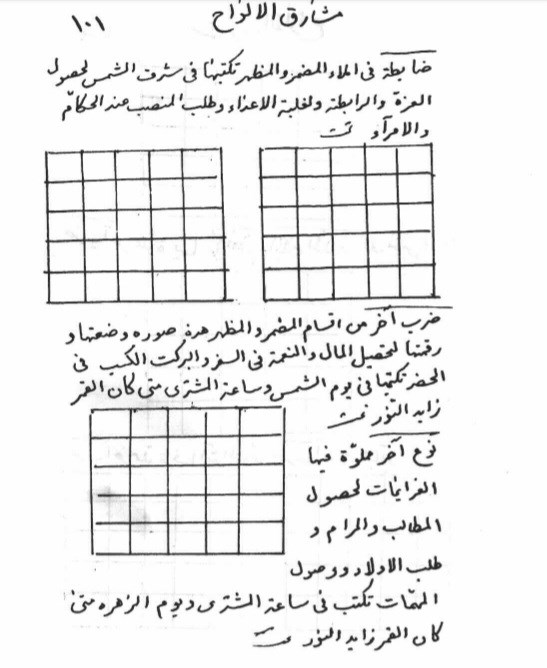 مشارق الالواح
١٠١
ضابطة فى املاء المضمر والمظهر تكتبها فى شرف الشمس لحصول
العزة والرابطة ولغلبة الاعداء وطلب المنصب عند الحكام
والامرآء تمت
ضرب آخر من اقسام المضمر والمظهر هذه صوره وضعتها و
رقمتها لتحصيل المال والنعمة فى السفر والبركت الكسب فى
الحضر تكتبها فى يوم الشمس وساعة المشترى متى كان القمر
زايد النور تمت
نوع آخر مملوّة فيها
لحصول
المطالب والمرام و
طلب الاولاد ووصول
المهمّات تكتب فى ساعة المشترى ويوم الزهره متى
كان القمر زايد النور تمت